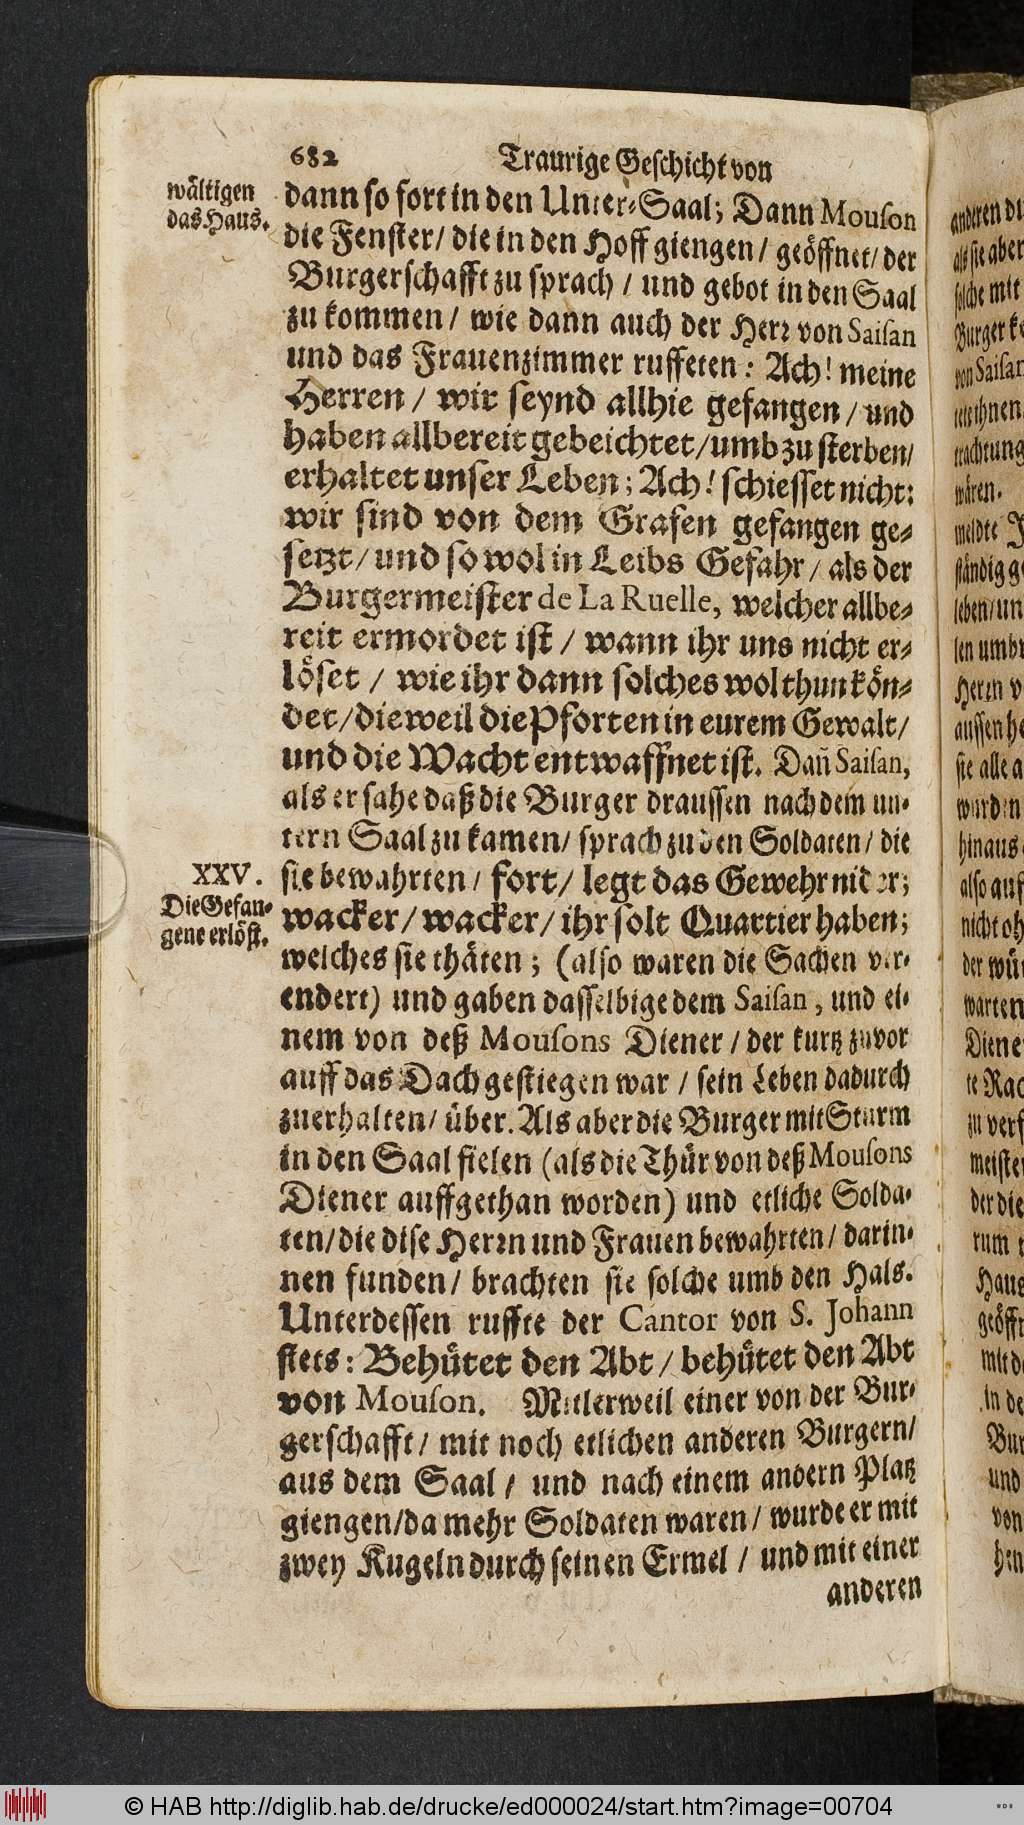 682 Traurige Geschicht von
wältigen
das Haus.
dann so fort in den Unter-Saal; Dann Mouson
die Fenster/ die in den Hoff giengen/ geöffnet/ der
Burgerschafft zu sprach/ und gebot in den Saal
zu kommen/ wie dann auch der Herr von Saisan
und das Frauenzimmer ruffeten: Ach! meine
Herren/ wir seynd allhie gefangen/ und
haben allbereit gebeichtet/ umb zu sterben/
erhaltet unser Leben; Ach! schiesset nicht:
wir sind von dem Grafen gefangen ge-
setzt/ und so wol in Leibs Gefahr/ als der
Burgermeister de La Ruelle, welcher allbe-
reit ermordet ist/ wann ihr uns nicht er-
löset/ wie ihr dann solches wol thun kön-
det/ dieweil die Pforten in eurem Gewalt/
und die Wacht entwaffnet ist. Dañ Saisan,
als er sahe daß die Burger draussen nach dem un-
tern Saal zu kamen/ sprach zu den Soldaten/ die
XXV.
Die Gefan-
gene erlöst.
sie bewahrten/ fort/ legt das Gewehr nider;
wacker/ wacker/ ihr solt Quartier haben;
welches sie thäten; (also waren die Sachen ver-
endert) und gaben dasselbige dem Saisan, und ei-
nem von deß Mousons Diener/ der kurtz zuvor
auff das Dach gestiegen war/ sein Leben dadurch
zuerhalten/ über. Als aber die Burger mit Sturm
in den Saal fielen (als die Thür von deß Mousons
Diener auffgethan worden) und etliche Solda-
ten/ die dise Herrn und Frauen bewahrten/ darin-
nen funden/ brachten sie solche umb den Hals.
Unterdessen ruffte der Cantor von S. Johann
stets: Behütet den Abt/ behütet den Abt
von Mouson. Mitlerweil einer von der Bur-
gerschafft/ mit noch etlichen anderen Burgern/
aus dem Saal/ und nach einem andern Platz
giengen/ da mehr Soldaten waren/ wurde er mit
zwey Kugeln durch seinen Ermel/ und mit einer
anderen
© HAB http://diglib.hab.de/drucke/ed000024/start.htm?image=00704